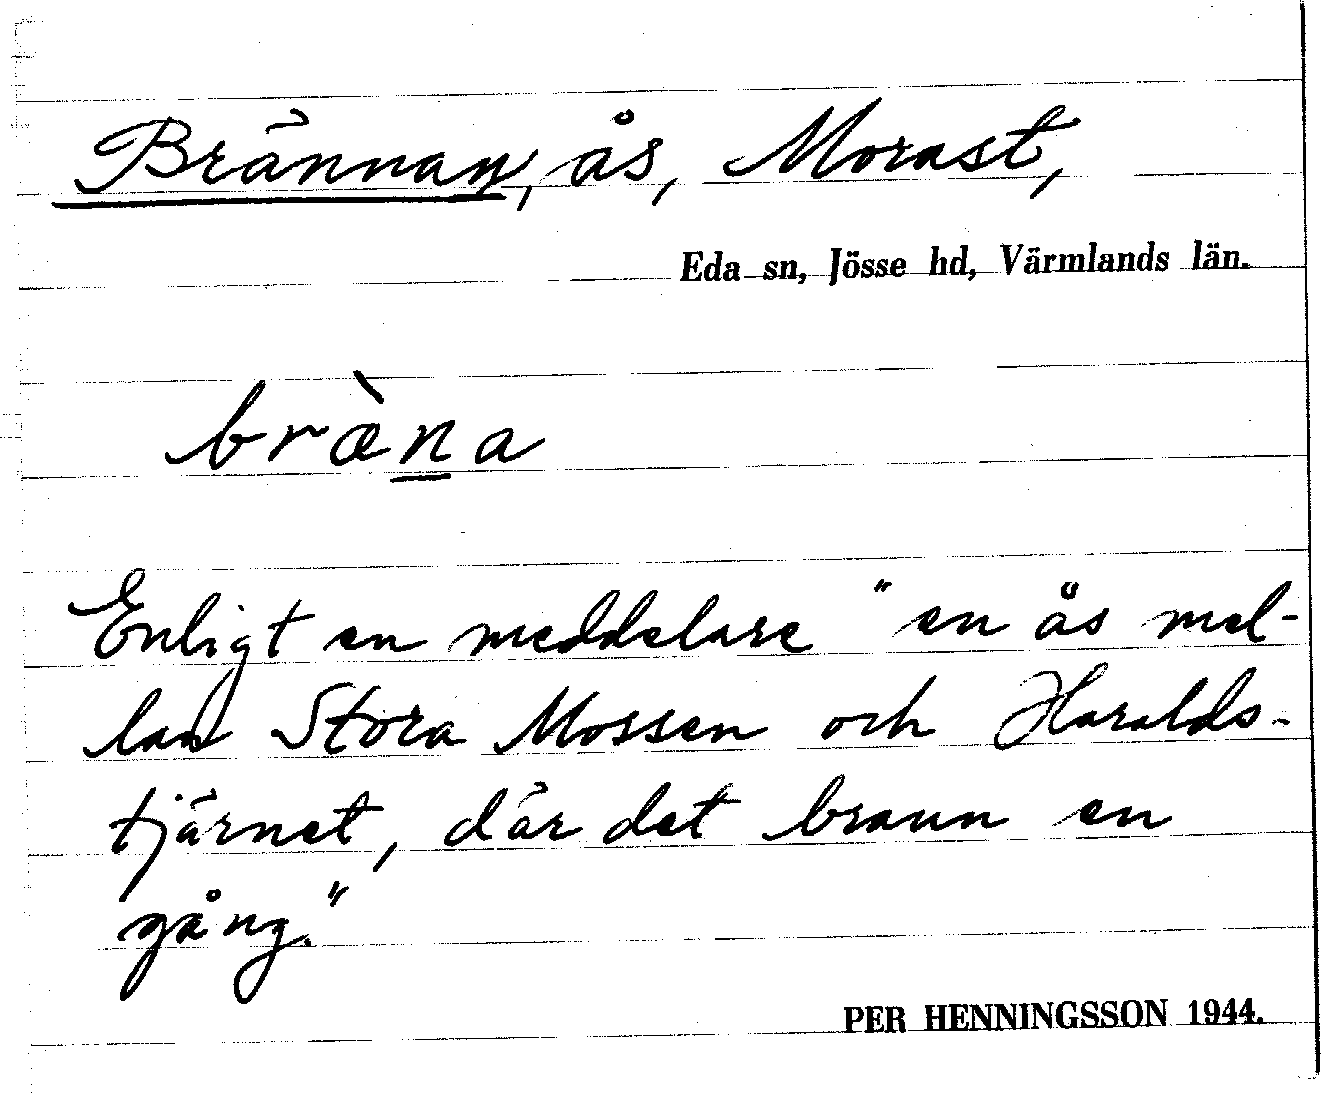 Brännan, ås, Morast,
Eda sn, Jösse hd, Värmlands län.
bræ̀n̲a
Enligt en meddelare "en ås mel-
lan Stora Mossen och Haralds-
tjärnet, där det brann en
gång."
PER HENNINGSSON 1944.